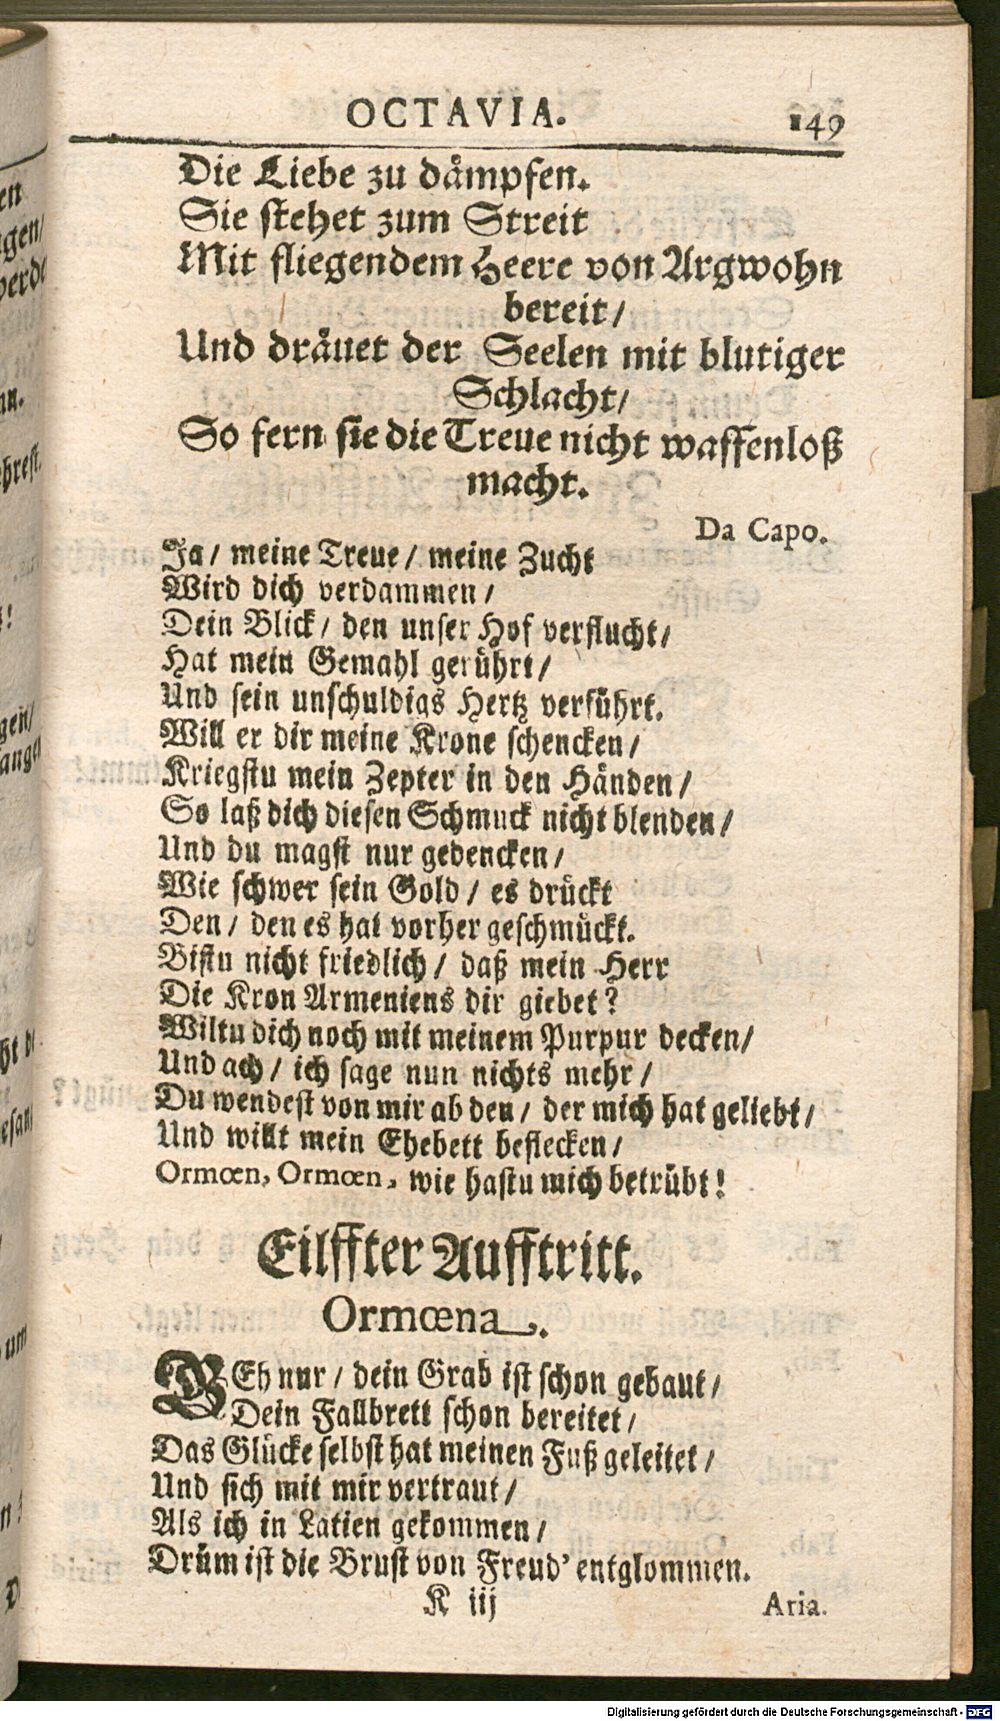 OCTAVIA. 149
Die Liebe zu dåmpfen.
Sie stehet zum Streit
Mit fliegendem Heere von Argwohn
bereit/
Und dråuet der Seelen mit blutiger
Schlacht/
So fern sie die Treue nicht waffenloß
macht.
Da Capo.
Ja/ meine Treue/ meine Zucht
Wird dich verdammen/
Dein Blick/ den unser Hof verflucht/
Hat mein Gemahl gerührt/
Und sein unschuldigs Hertz verführt.
Will er dir meine Krone schencken/
Kriegstu mein Zepter in den Händen/
So laß dich diesen Schmuck nicht blenden/
Und du magst nur gedencken/
Wie schwer sein Gold/ es drückt
Den/ den es hat vorher geschmückt.
Bistu nicht friedlich/ daß mein Herr
Die Kron Armeniens dir giebet?
Wiltu dich noch mit meinem Purpur decken/
Und ach/ ich sage nun nichts mehr/
Du wendest von mir ab den/ der mich hat geliebt/
Und willt mein Ehebett beflecken/
Ormœn, Ormœn, wie hastu mich betrübt!
Eilffter Aufftritt.
Ormœna.
GEh nur/ dein Grab ist schon gebaut/
Dein Fallbrett schon bereitet/
Das Glücke selbst hat meinen Fuß geleitet/
Und sich mit mir vertraut/
Als ich in Latien gekommen/
Drüm ist die Brust von Freud' entglommen.
K iij Aria.
Digitalisierung gefördert durch die Deutsche Forschungsgemeinschaft - DFG